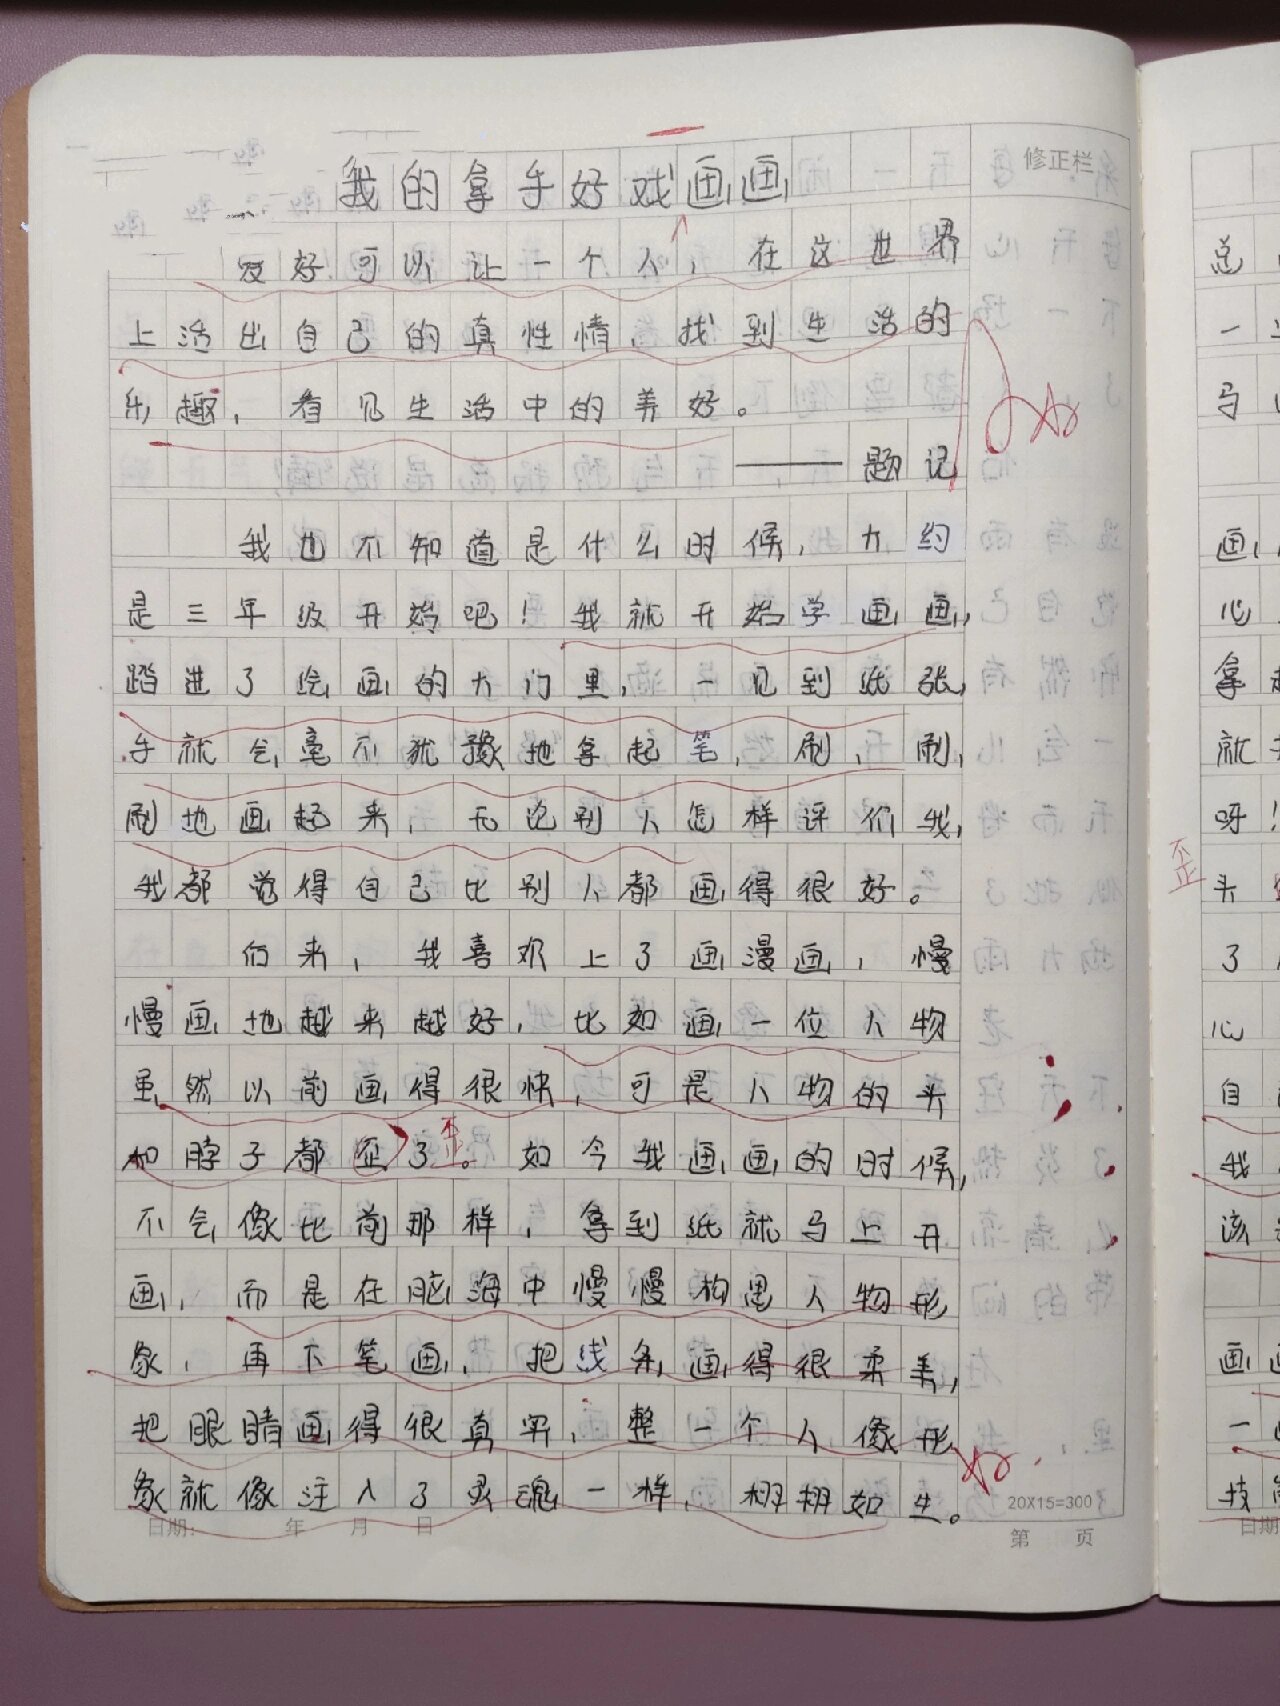 我的拿手好戏画画
修正栏
爱好可以让一个人，在这世界
上活出自己的真性情，找到生活的
乐趣，看见生活中的美好。
——题记
我也不知道是什么时候，大约
是三年级开始吧！我就开始学画画，
踏进了绘画的大门里，一见到纸张，
手就会毫不犹豫地拿起笔，刷，刷，
刷地画起来，无论别人怎样评价我，
我都觉得自己比别人都画得很好。
后来，我喜欢上了画漫画，慢
慢画地越来越好，比如画一位人物
虽然以前画得很快，可是人物的头
和脖子都歪了。如今我画画的时候，
歪
不会像比前那样，拿到纸就马上开
画，而是在脑海中慢慢构思人物形
象，再下笔画，把线条画得很柔美，
把眼睛画得很真实，整一个人像形
象就像注入了灵魂一样，栩栩如生。
20X15=300
日期： 年 月 日
第 页
总
一
马
画，
心
拿起
就
呀！
歪
头
了
心
自
我
该
画
一
技
日期